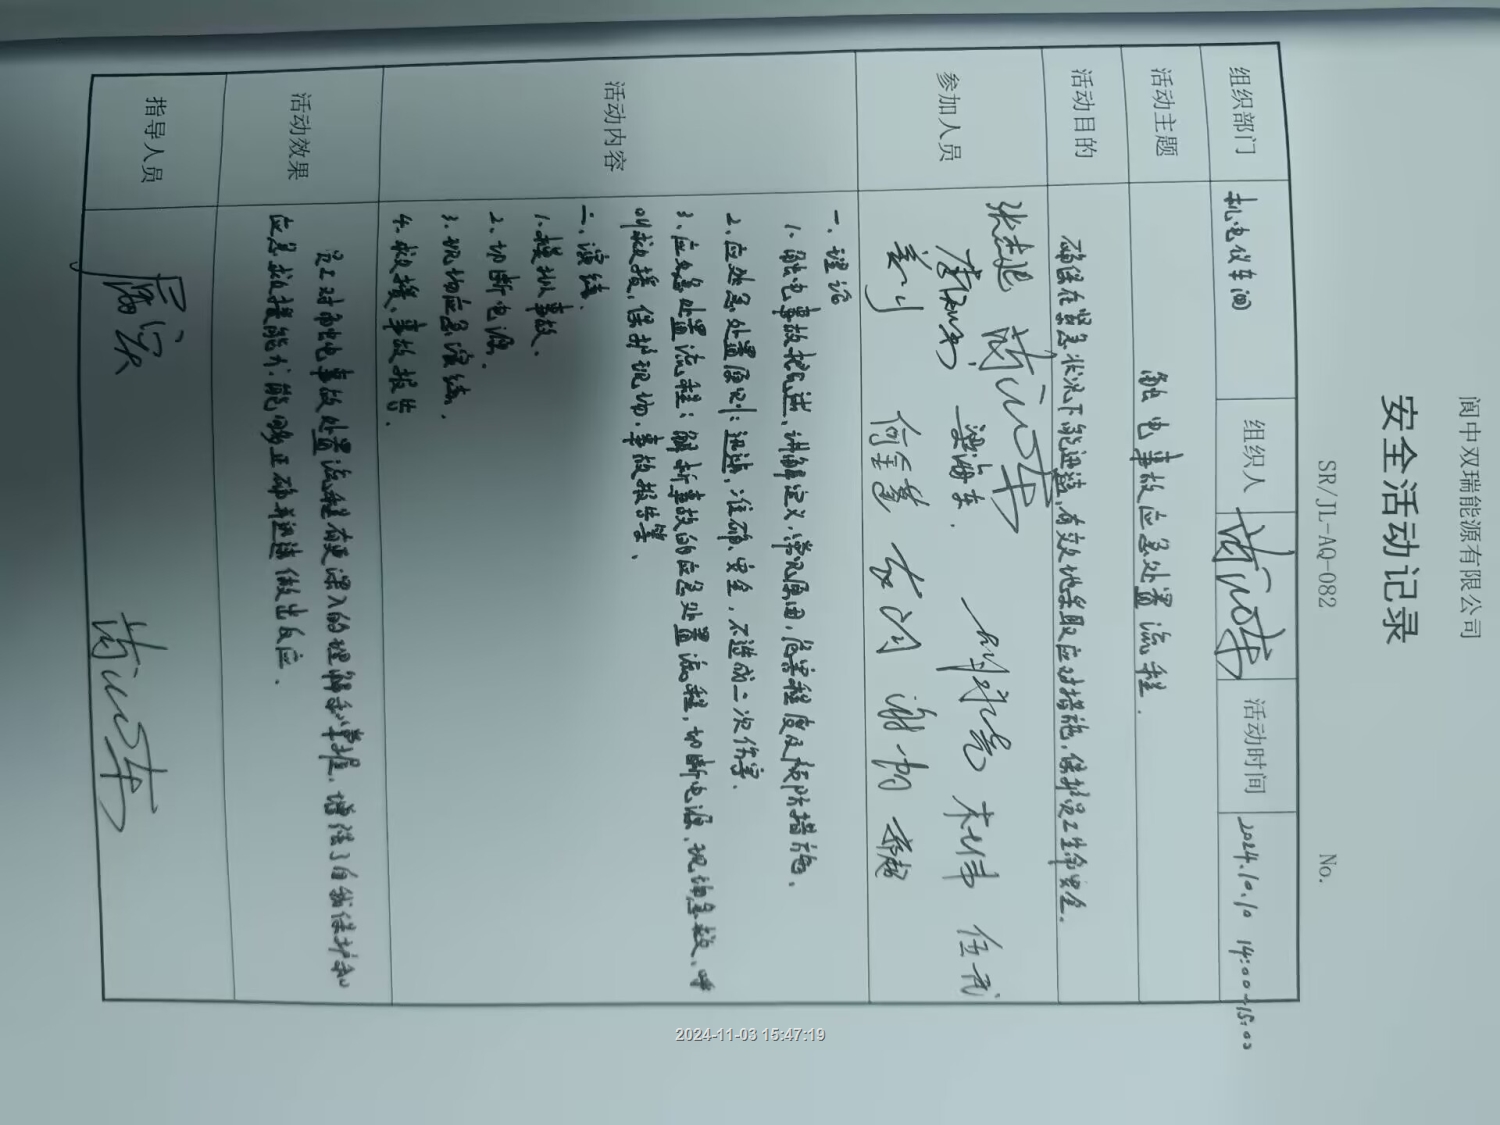 阆中双瑞能源有限公司
安全活动记录
SR/JL-AQ-082 No.
组织部门 机电仪车间 组织人 活动时间 2024.10.10 14:00-15:00
活动主题 触电事故应急处置流程.
活动目的 确保在紧急状况下能迅速,有效地采取应对措施,保护员工生命安全.
参加人员 张志起
梁海东. 伍武
姜川 何全慧 谢帅
活动内容 一、理论
1、触电事故概述,讲解定义,常见原因,危害程度及预防措施.
2、应处急处置原则:迅速,准确、安全,不造成二次伤害.
3、应急处置流程:解析事故的应急处置流程,切断电源,现场急救、呼
叫救援,保护现场.事故报告等、
二、演练.
1.模拟事故、
2、切断电源.
3、现场应急演练.
4、救援、事故报告.
活动效果 员工对触电事故处置流程有更深入的理解和掌握,增强了自我保护和
应急救援能力.能够正确并迅速做出反应.
指导人员
2024-11-03 15:47:19